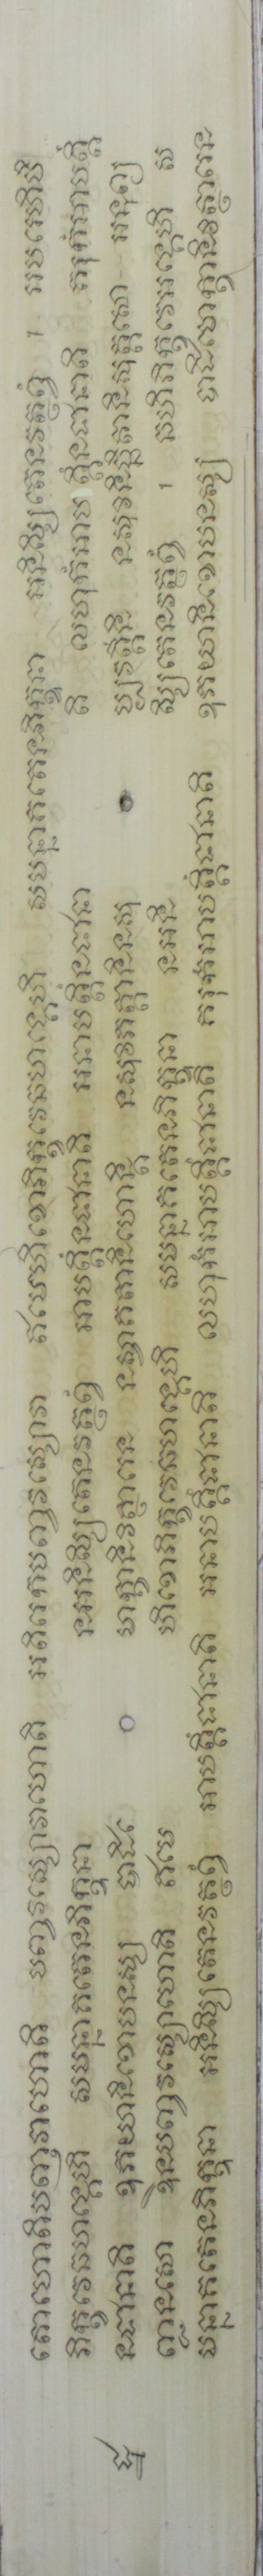 តោហោតិបញ្ញវាហោតិ បញ្ចវស្សោវាហោតិ អតិរេកបញ្ចវស្សោវា ឥមេហិខោភិក្ខវេឆហង្គេហិ សមន្នាគតេនភិក្ខុនា អនិស្សិតេនវត្ថព្វំ ។ អបរេហិបិ
ភិក្ខវេឆហង្គេហិ សមន្នាគតេនភិក្ខុនា នអនិស្សិតេនវត្ថព្វំ អាបត្តិំនជានាតិ អនាបត្តិំនជានា តិ លហុកំអាបត្តិំនជានាតិ គរុកំអាបត្តិំ
នជានាតិ ឧភយានិខោបនស្ស បាតិមោ ក្ខានិវិត្ថារេន នស្វាគតានិហោន្តិ នសុវិភត្តានិនសុ ប្បវត្តីនិ នសុវិនិច្ឆិតានិសុត្តសោ អនុព្យ
ញ្ជនសោ ឩនបញ្ចវស្សោហោតិ ឥមេ ហិខោភិក្ខវេឆហង្គេហិ សមន្នាគតេនភិក្ខុនា នអនិ ស្សិតេនវត្ថព្វំ ។ ឆហិភិក្ខវេអង្គេហិ ស
មន្នាគតេនភិក្ខុនា អនិស្សិតេនវត្ថព្វំ អាបត្តិំជានាតិ អនាបត្តិំជានាតិ លហុកំអាបត្តិំជានាតិ គរុកំអាបត្តិំជានាតិ ឧភយានិខោបនស្ស បាតិមោក្ខានិវិត្ថារេន